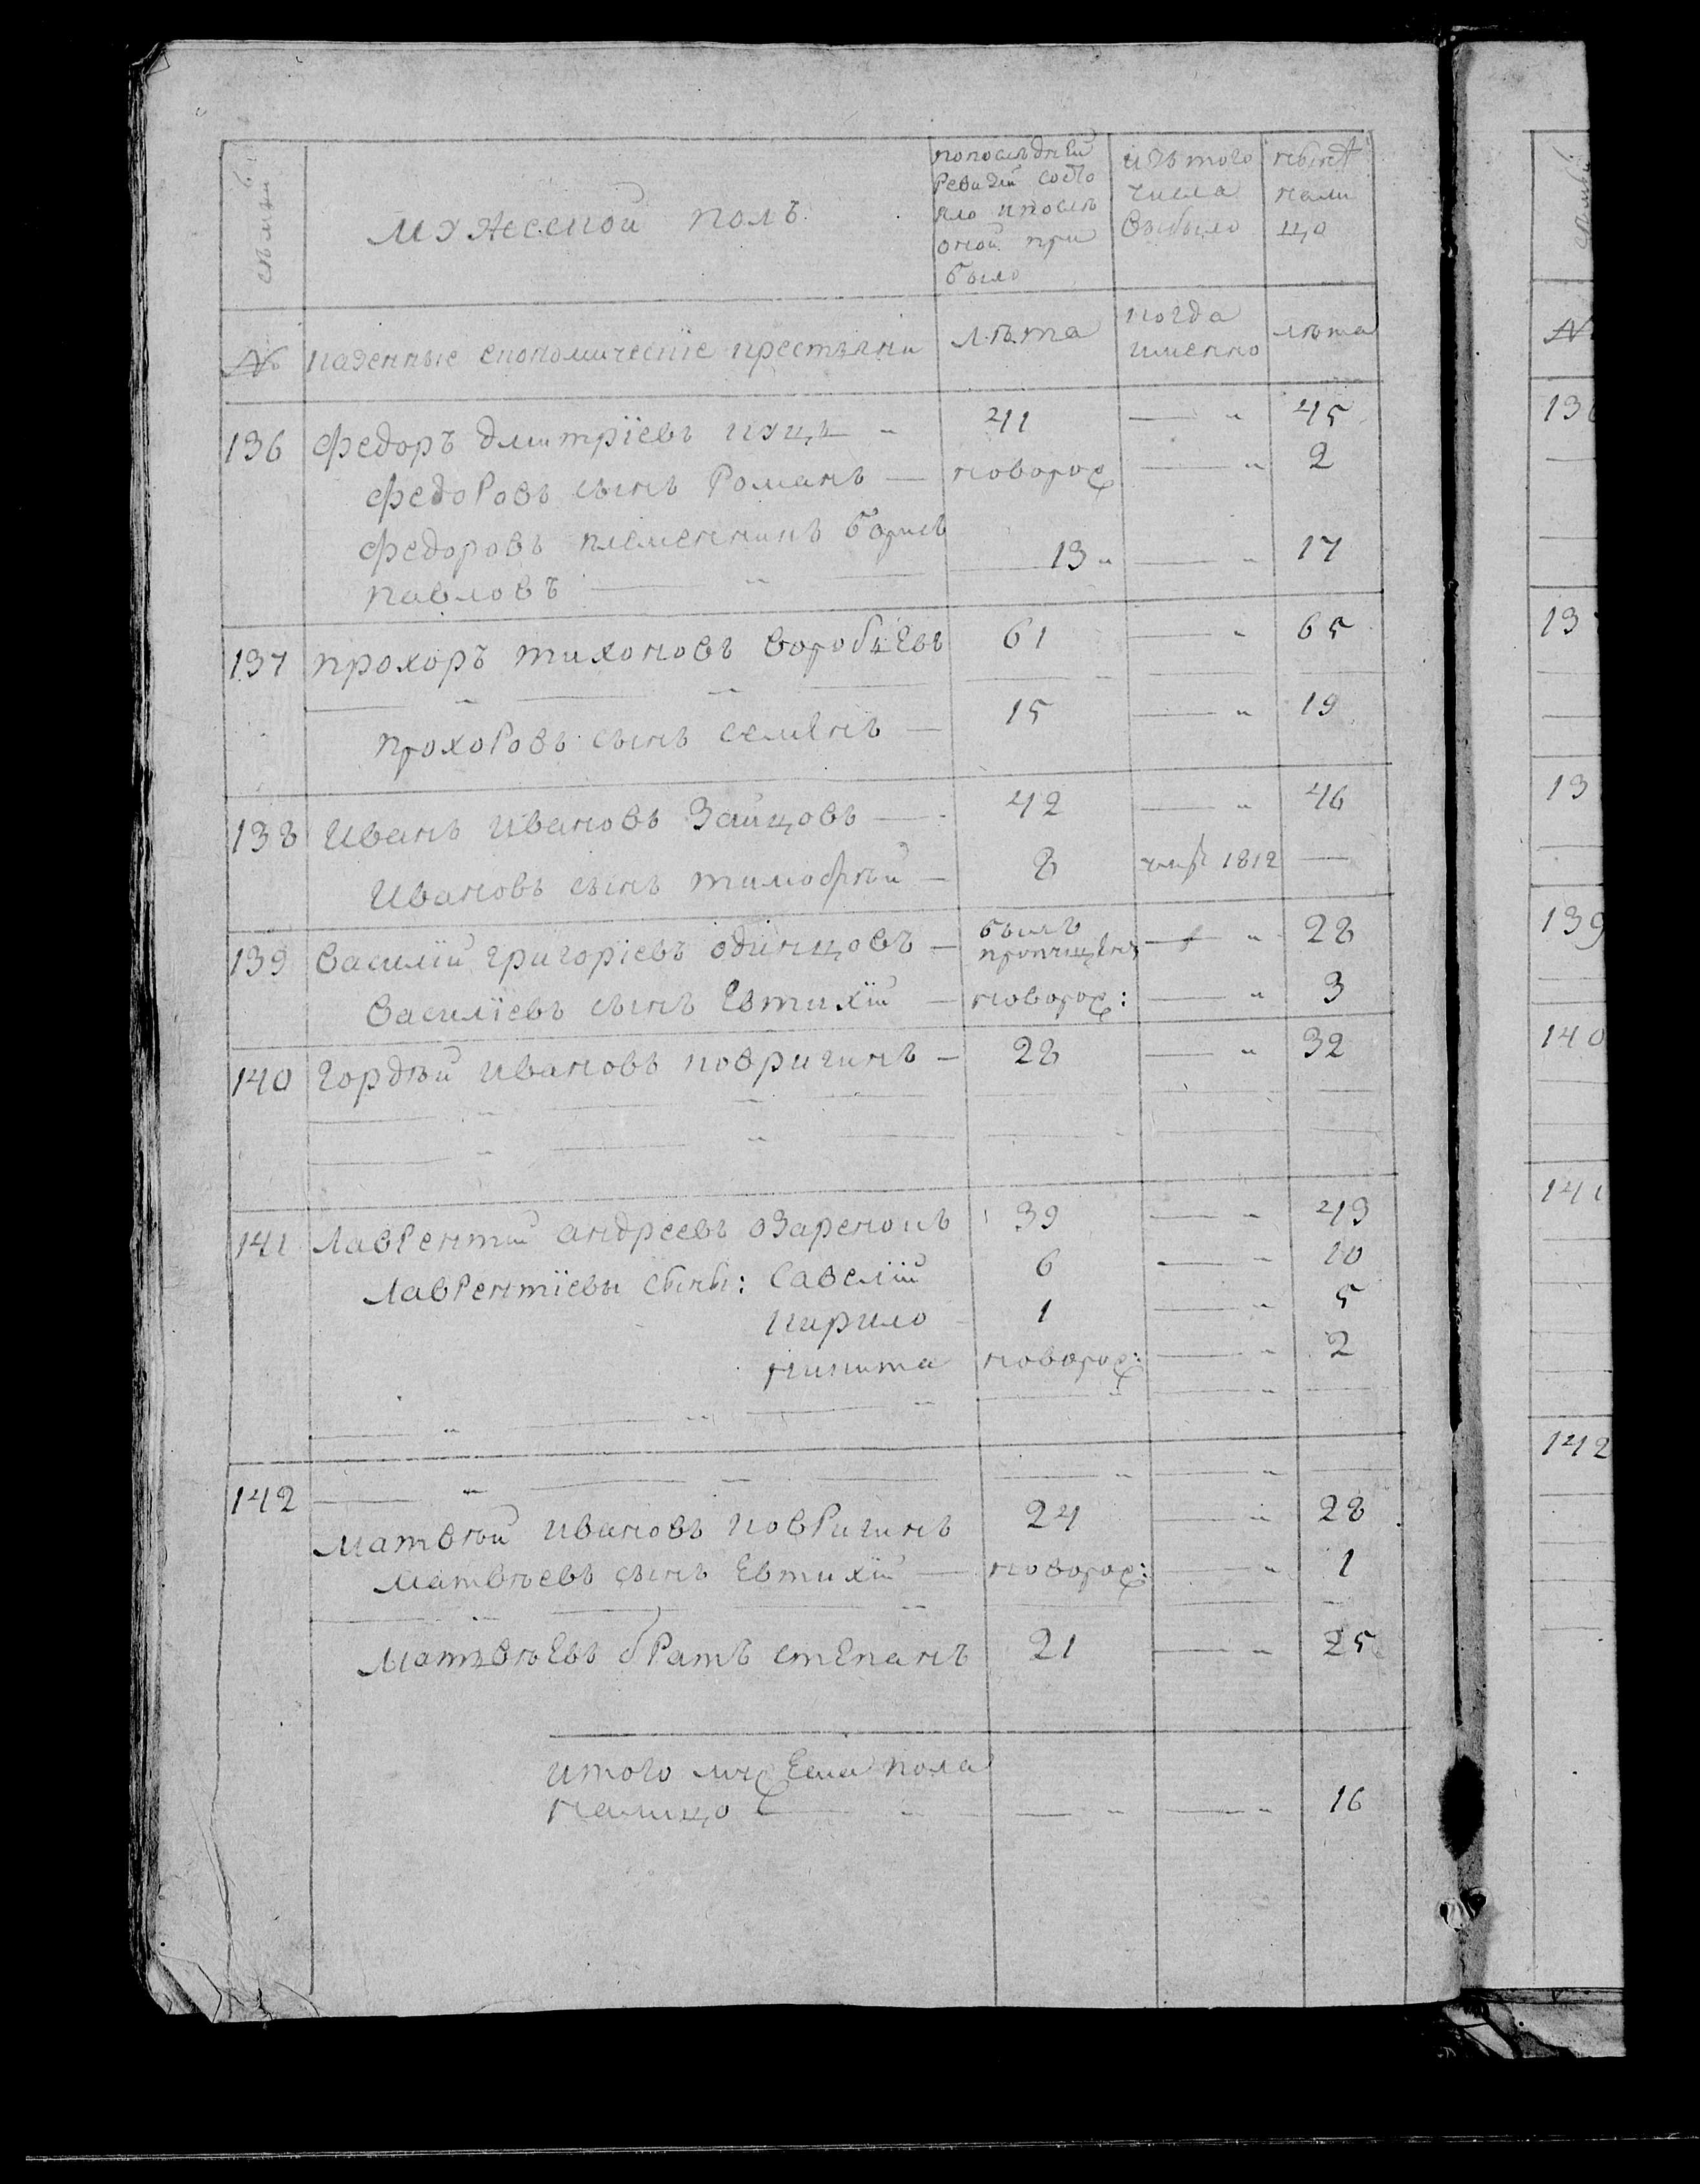 семьи
мужеской полъ
по последней
Ревизiи состо
яло и после
оной при
было
изъ того
числа
выбыло
ныне
нали
цо
№
казенные економическiе крестьяни
лѣта
когда
именно
лѣта
136 Федоръ дмитрiевъ куцъ — „ 41 — „ 45
федоровъ сынъ Романъ — новорож — „ 2
федоровъ племенникъ борисъ
павловъ — „ — 13 „ — „ 17
137 прохоръ тихоновъ воробьевъ 61 — „ 65
— „ — „ —
прохоровъ сынъ семенъ — 15 — „ 19
138 Иванъ Ивановъ Зайцовъ — 42 — „ 46
Ивановъ сынъ тимофѣй — 8 1812 —
139 Василiй григорiевъ одинцовъ — былъ
пропущенъ — „ 28
Василiевъ сынъ Евтихiй — новорож: — „ 3
140 гордѣй Ивановъ ковригинъ — 28 — „ 32
— „ — „ —
— „ — „ —
141 Лаврентiй андреевъ озаренокъ 39 — „ 43
Лаврентiевы сыны: Савелiй 6 — „ 10
кирило 1 — „ 5
никита новорож: — „ 2
— „ — „ — „ — „ — „ —
142 — „ — — — „ — „ —
матвѣй ивановъ ковригинъ 24 — „ 28
матвѣевъ сынъ Евтихiй — новорож: — „ 1
матвѣевъ братъ степанъ 21 — „ 25
итого муж еска пола
налицо — „ — „ — „ 16
семьи
№
136
13
13
139
140
141
142